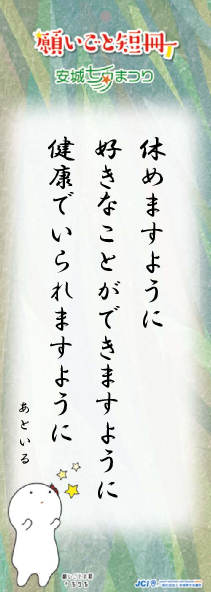 願いごと短冊
安城七夕まつり
休めますように
好きなことができますように
健康でいられますように
あといる
JCI